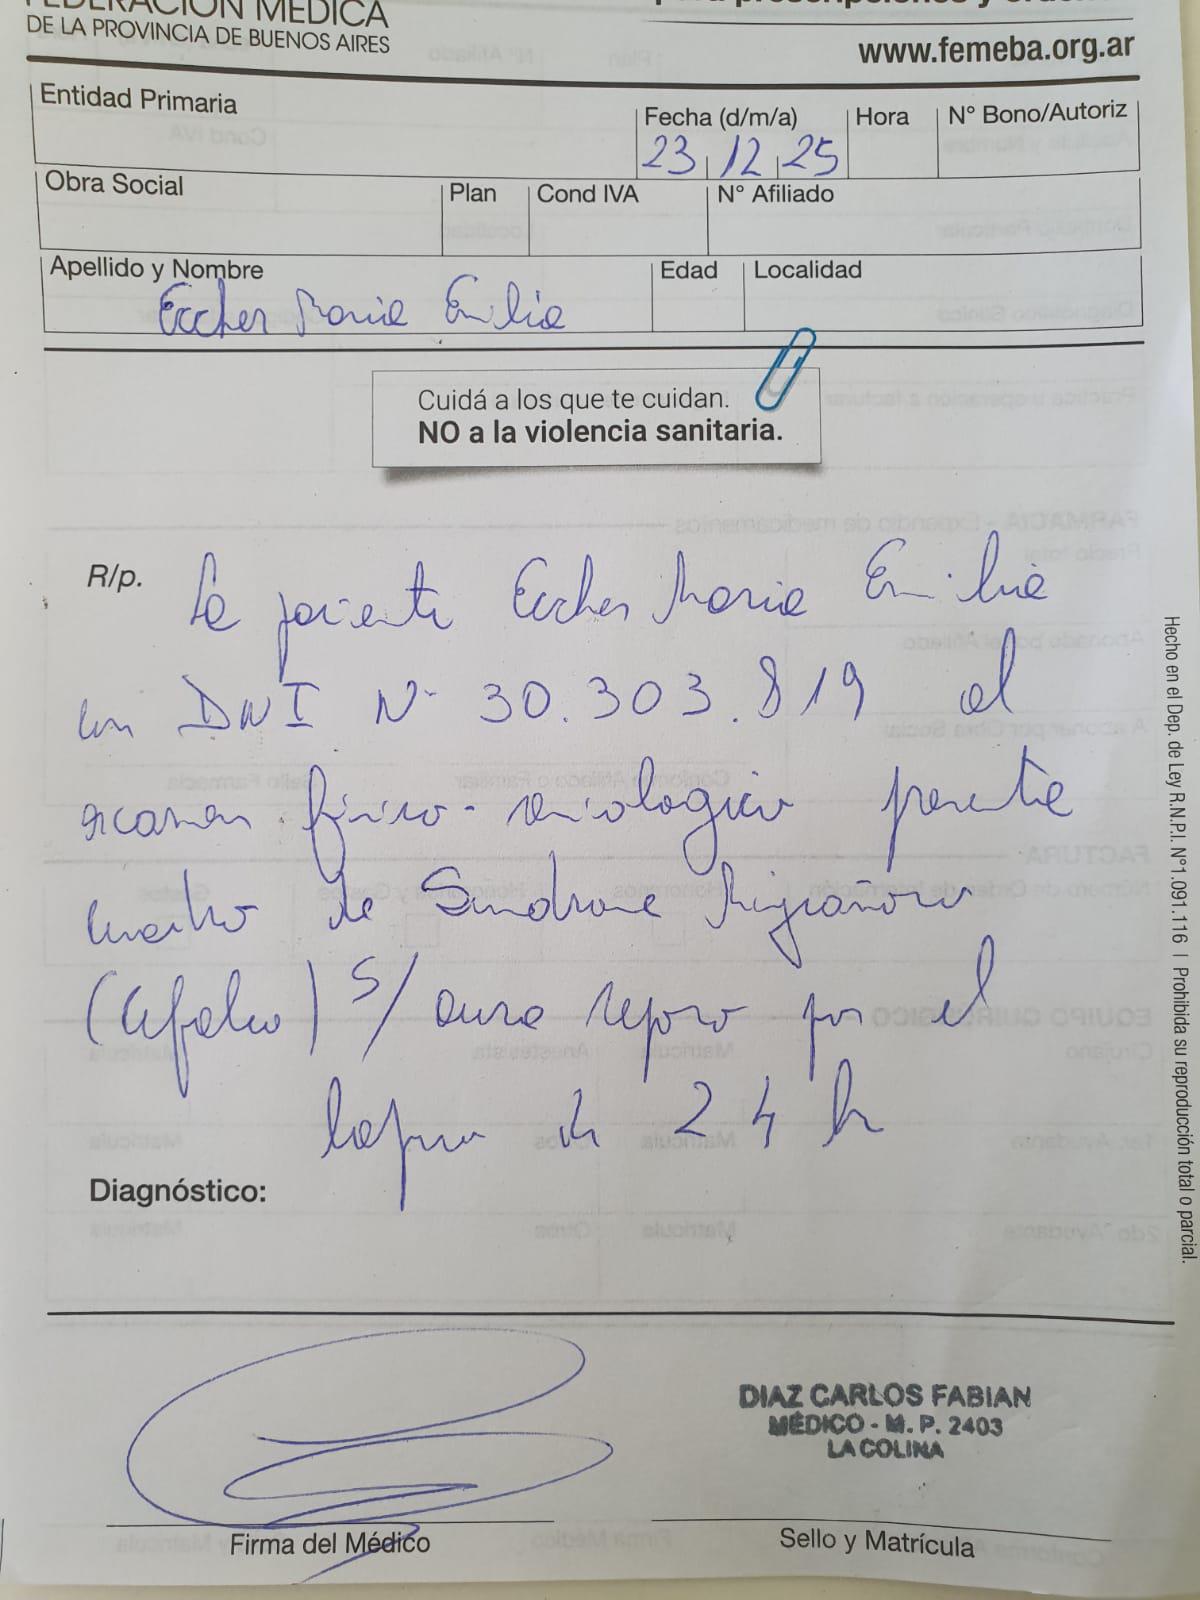 FEDERACIÓN MÉDICA
DE LA PROVINCIA DE BUENOS AIRES
www.femeba.org.ar
Entidad Primaria
Fecha (d/m/a) Hora N° Bono/Autoriz
23 12 25
Obra Social Plan Cond IVA N° Afiliado
Apellido y Nombre Edad Localidad
Eccher Maria Emilia
Cuidá a los que te cuidan.
NO a la violencia sanitaria.
R/p. La paciente Eccher Maria Emilia
con DNI N° 30.303.819 al
examen físico-semiologico presente
cuadro de Sindrome Migrañoso
(Cefalea) s/ aura reposo por el
lapso de 24 h
Diagnóstico:
DIAZ CARLOS FABIAN
MÉDICO - M. P. 2403
LA COLINA
Firma del Médico
Sello y Matrícula
Hecho en el Dep. de Ley R.N.P.I. N°1.091.116 | Prohibida su reproducción total o parcial.